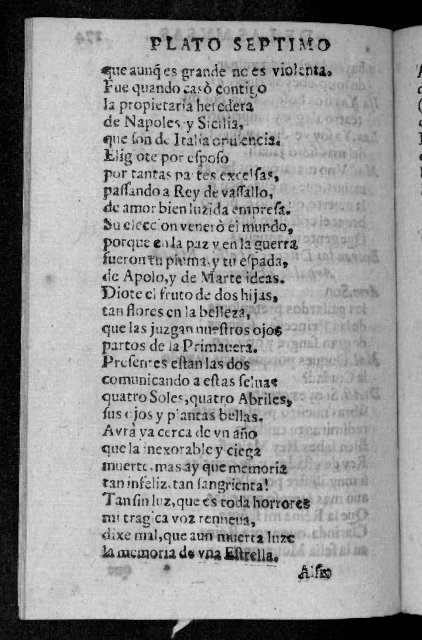 PLATO SEPTIMO
que aunq̃ es grande no es violenta.
Fue quando casò contigo
la propietaria heredera
de Napoles, y Sicilia,
que son de Italia opulencia.
Eligiote por esposo
por tantas partes excelsas,
passando a Rey de vassallo,
de amor bien luzida empresa.
Su eleccion venerò el mundo,
porque en la paz y en la guerra
fueron tu pluma, y tu espada,
de Apolo, y de Marte ideas.
Diote el fruto de dos hijas,
tan flores en la belleza,
que las juzgan nuestros ojos
partos de la Primavera.
Presentes estàn las dos
comunicando a estas seluas
quatro Soles, quatro Abriles,
sus ojos y plantas bellas.
Avrà ya cerca de vn año
que la inexorable y ciega
muerte, mas ay que memoria
tan infeliz, tan sangrienta!
Tan sin luz, que es toda horrores
mi tragica voz renueua,
dixe mal, que aun muerta luze
la memoria de vna Estrella.